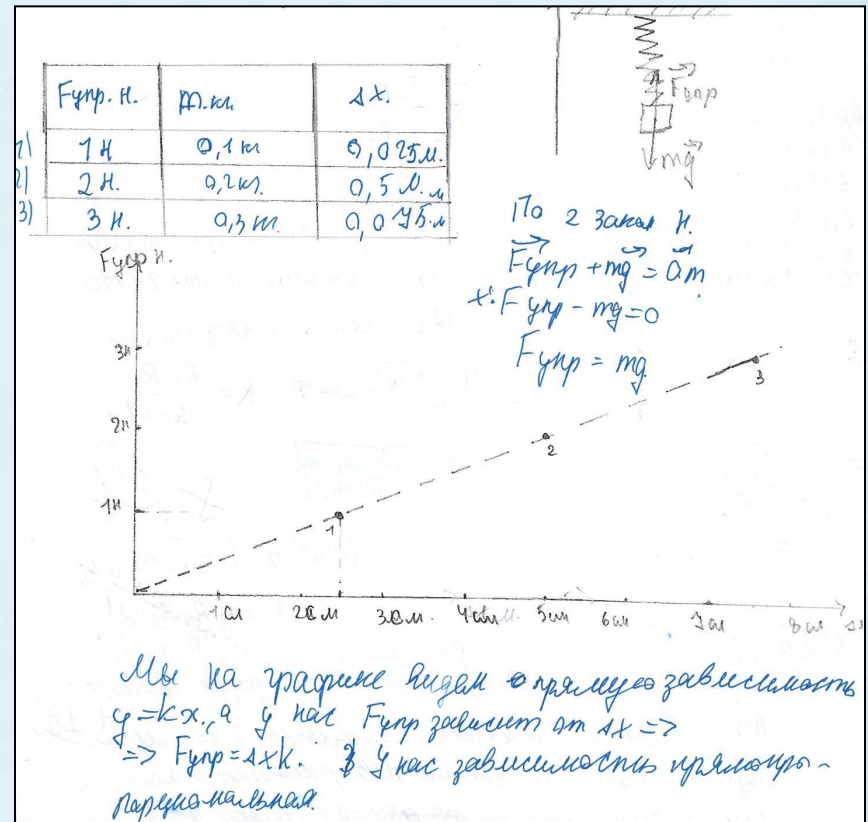 Fупр. Н. m.кг. Δх.
1) 1 Н 0,1 кг 0,025 м.
2) 2 Н. 0,2 кг. 0,5 м. м
3) 3 Н. 0,3 кг. 0,075.м
Fупр
mg
По 2 закон Н.
Fупр + mg = am
x: Fупр - mg = 0
Fупр = mg
Fупр Н.
3Н
2Н
1Н
1
2
3
1см 2см 3см. 4см 5см 6см 7см 8см Δх
Мы на графике видем прямую зависимость
y = kx., а у нас Fупр зависит от Δх =>
=> Fупр = Δхk. У нас зависимость прямопро-
парцеональная.